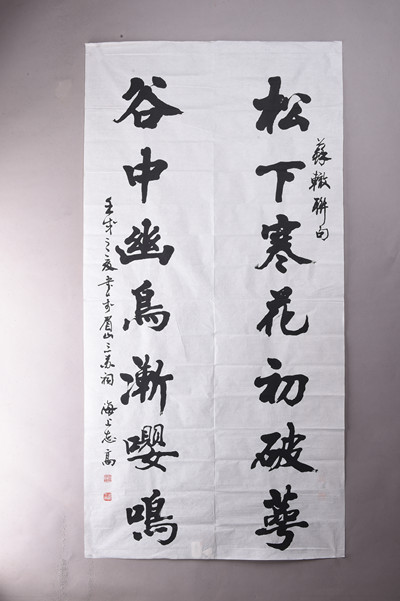 蘇轍聯句
松下寒花初破萼
谷中幽鳥漸嚶鳴
壬戌之夏書於眉山三蘇祠 海上志高